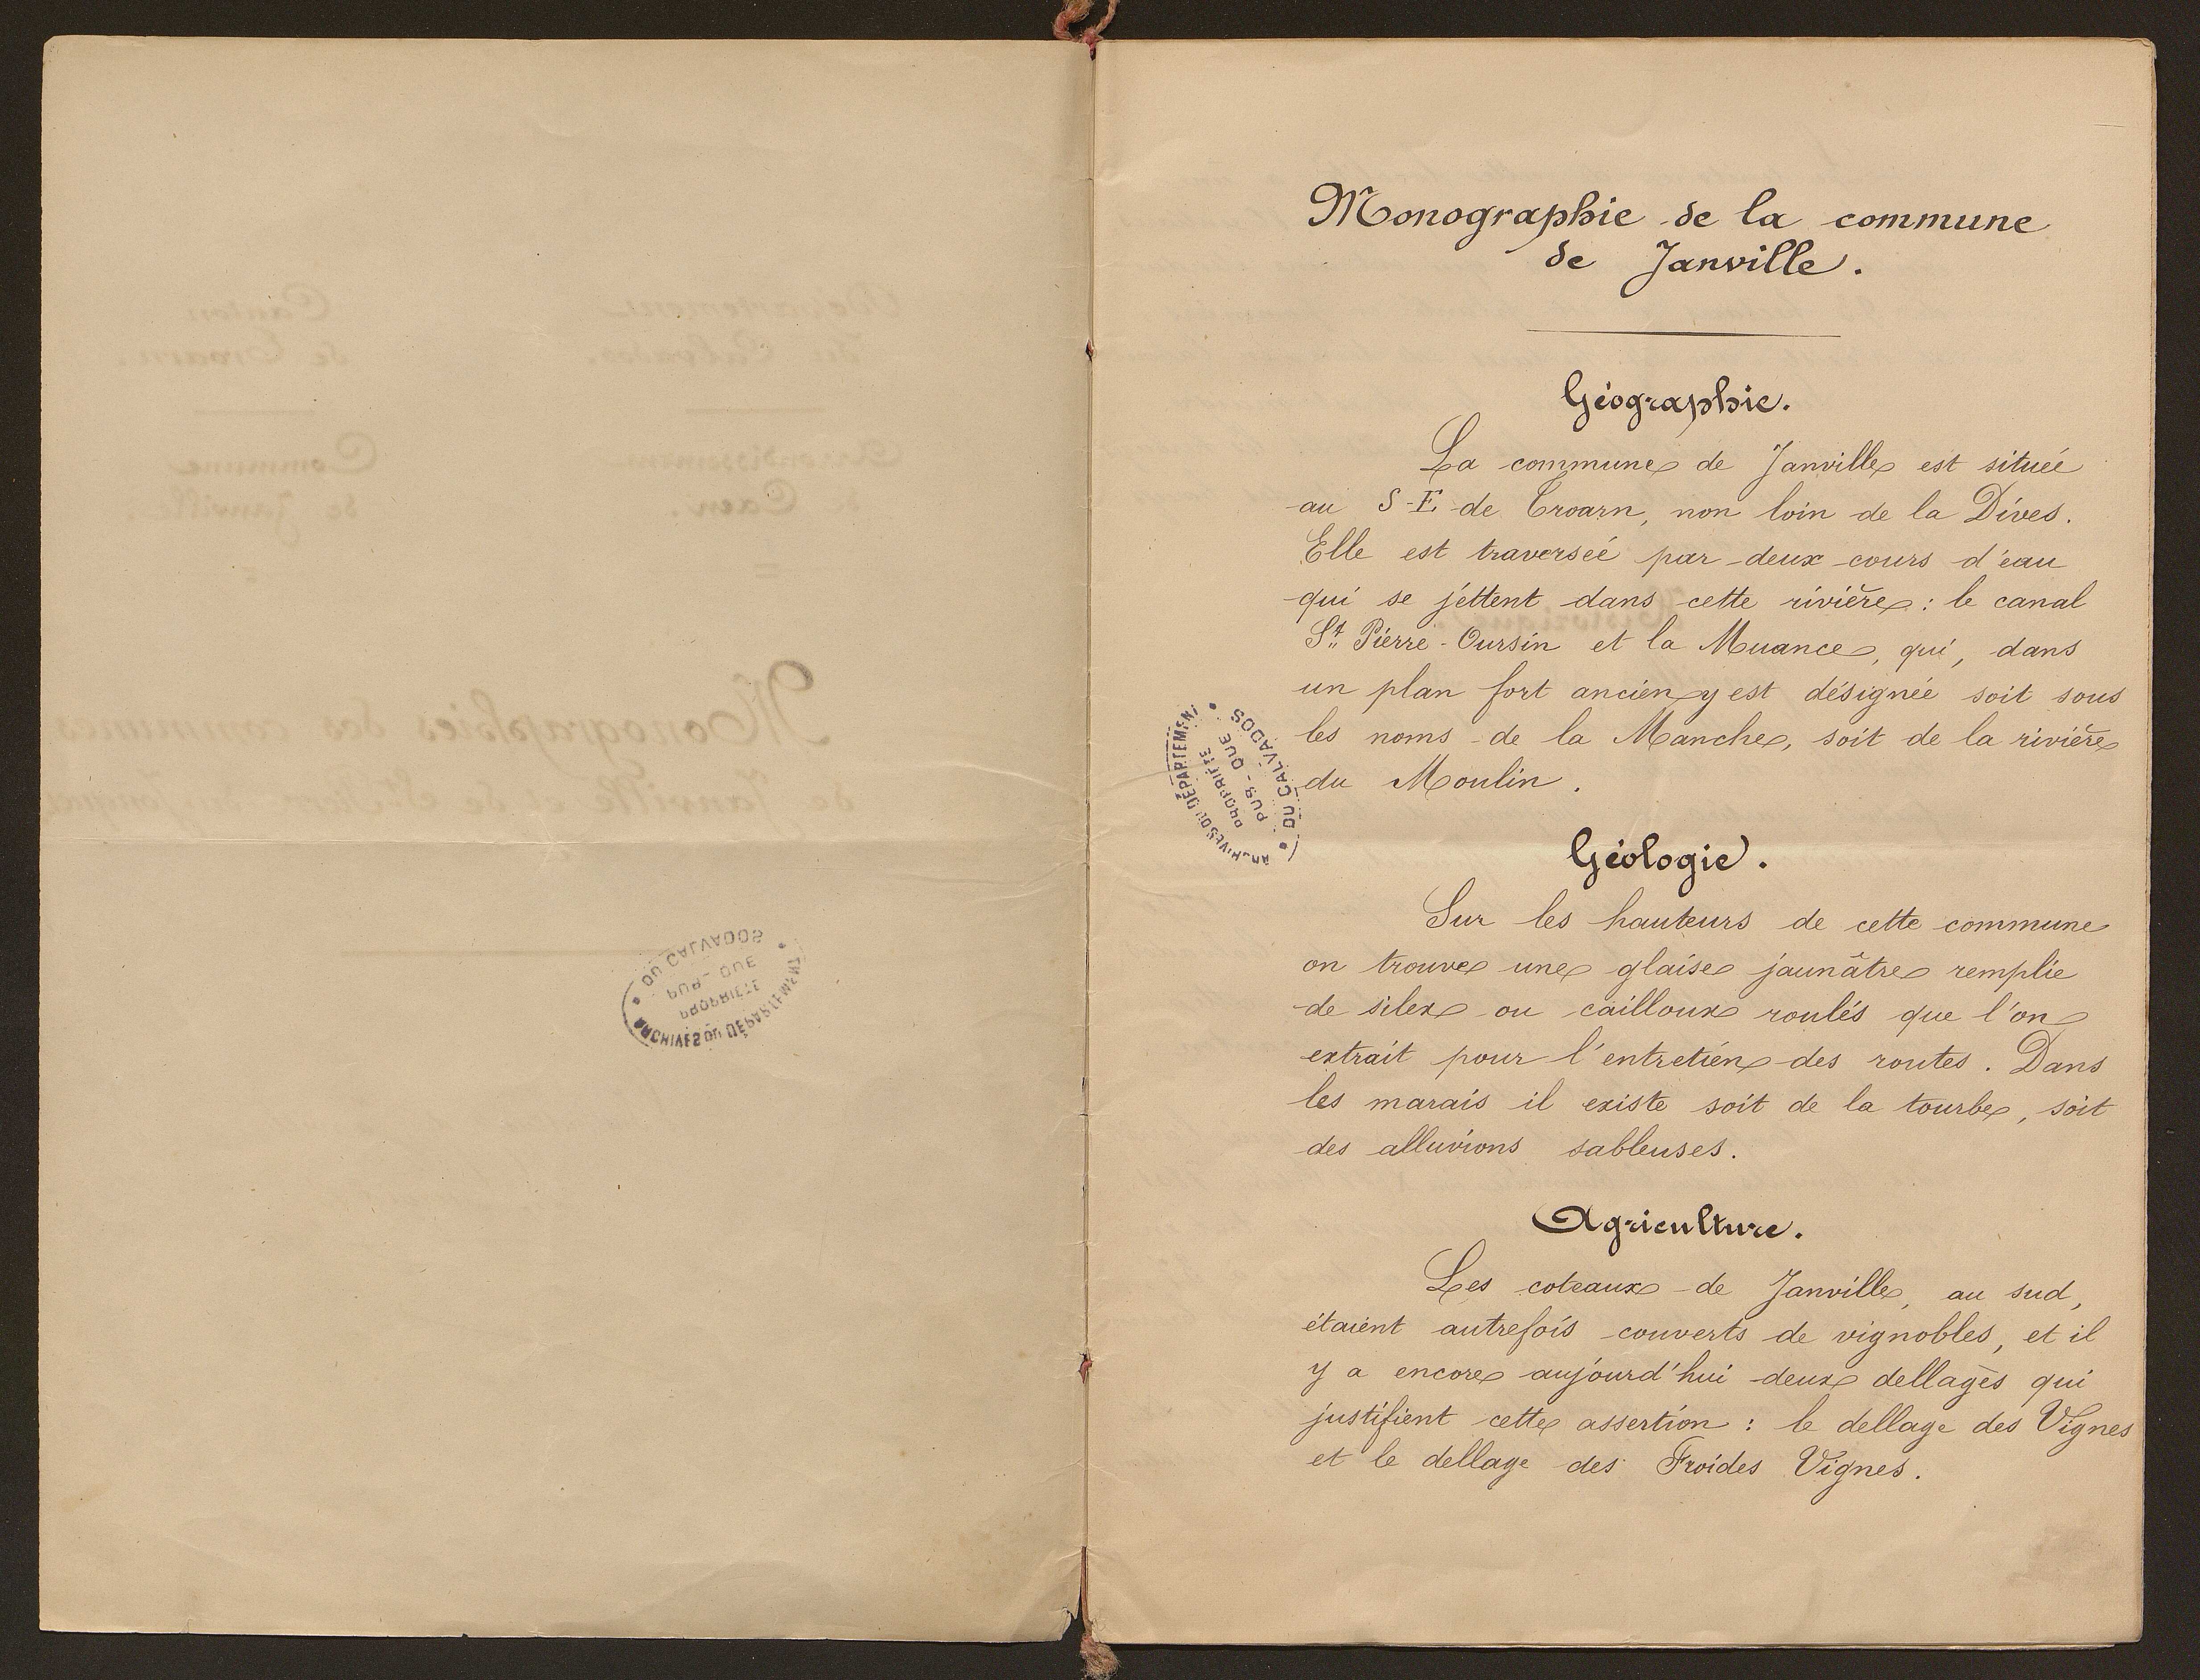 Monographie de la commune
de Janville.
Géographie.
La commune de Janville est située
au S-E de Troarn, non loin de la Dives.
Elle est traversée par deux cours d'eau
qui se jettent dans cette rivière : le canal
St Pierre-Oursin et la Muance, qui, dans
un plan fort ancien y est désignée soit sous
les noms de la Manche, soit de la rivière
du Moulin.
Géologie.
Sur les hauteurs de cette commune
on trouve une glaise jaunâtre remplie
de silex ou cailloux roulés que l'on
extrait pour l'entretien des routes. Dans
les marais il existe soit de la tourbe, soit
des alluvions sableuses.
Agriculture.
Les coteaux de Janville, au sud,
étaient autrefois couverts de vignobles, et il
y a encore aujourd'hui deux dellages qui
justifient cette assertion : le dellage des Vignes
et le dellage des Froides Vignes.
ARCHIVES DU DÉPARTEMENT
PROPRIÉTÉ
PUB-QUE
DU CALVADOS
ARCHIVES DU DÉPARTEMENT
PROPRIÉTÉ
PUB-QUE
DU CALVADOS